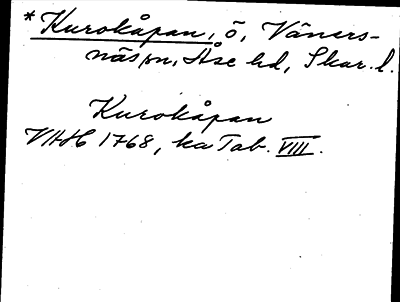 * Kurokåpan, ö, Väners-
näs sn, Åse hd, Skar. l.
Kurokåpan
VAH 1768, ka Tab. VIII.